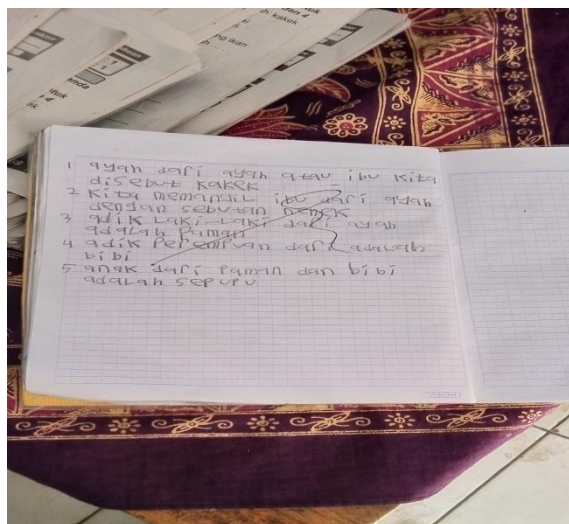 tuk
dan 4
h kakek
ng ikan
h ...
nda
ntuk
4
1 ayah dari ayah atau ibu kita
disebut kakek
2 kita memanggil ibu dari ayah
dengan sebutan nenek
3 adik laki-laki dari ayah
adalah paman
4 adik perempuan dari adalah
bibi
5 anak dari paman dan bibi
adalah sepupu